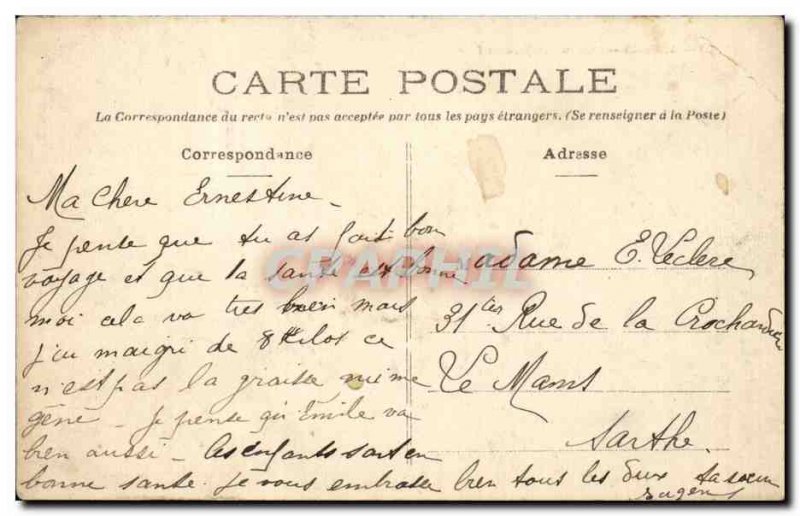 CARTE POSTALE
La Correspondance du recto n'est pas acceptée par tous les pays étrangers. (Se renseigner à la Poste)
Correspondance
Ma Chere Ernestine
Je pense que tu as fait bon
voyage et que la santé est bonne
moi cela va tres bien mais
j'ai maigri de 8 Kilos ce
n'est pas la graisse qui me
gène - Je pense qu'Emile va
bien aussi - les enfants sont en
bonne santé. Je vous embrasse bien tous les deux ta soeur
Eugenie
Adresse
Madame E. Leclere
31 ter Rue de la Crochardière
Le Mans
Sarthe.
CPAPHIL.COM